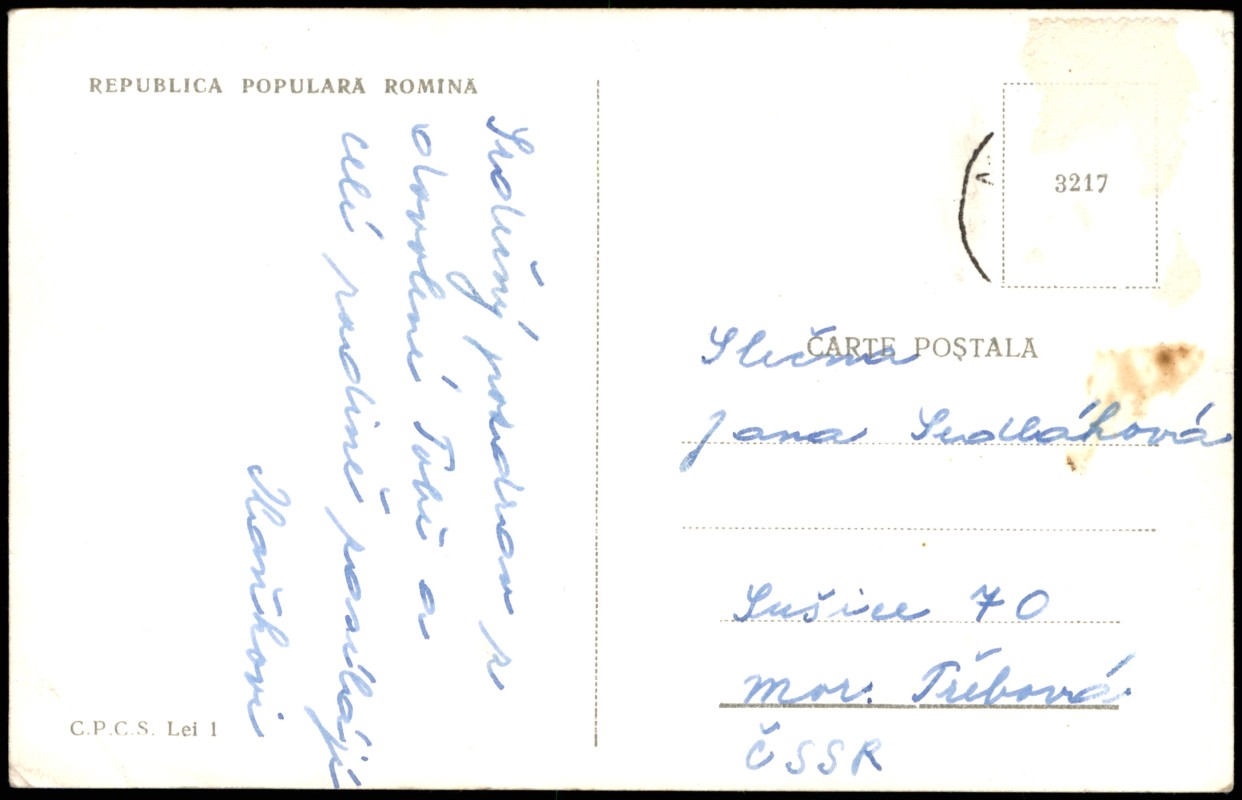 REPUBLICA POPULARĂ ROMÎNĂ
Srdečný pozdrav z
dovolené Tobě a
celé rodině posílají
Haničkovi
C.P.C.S. Lei 1
3217
CARTE POȘTALĂ
Slečna
Jana Sedláková
Sušice 70
Mor. Třebová
ČSSR